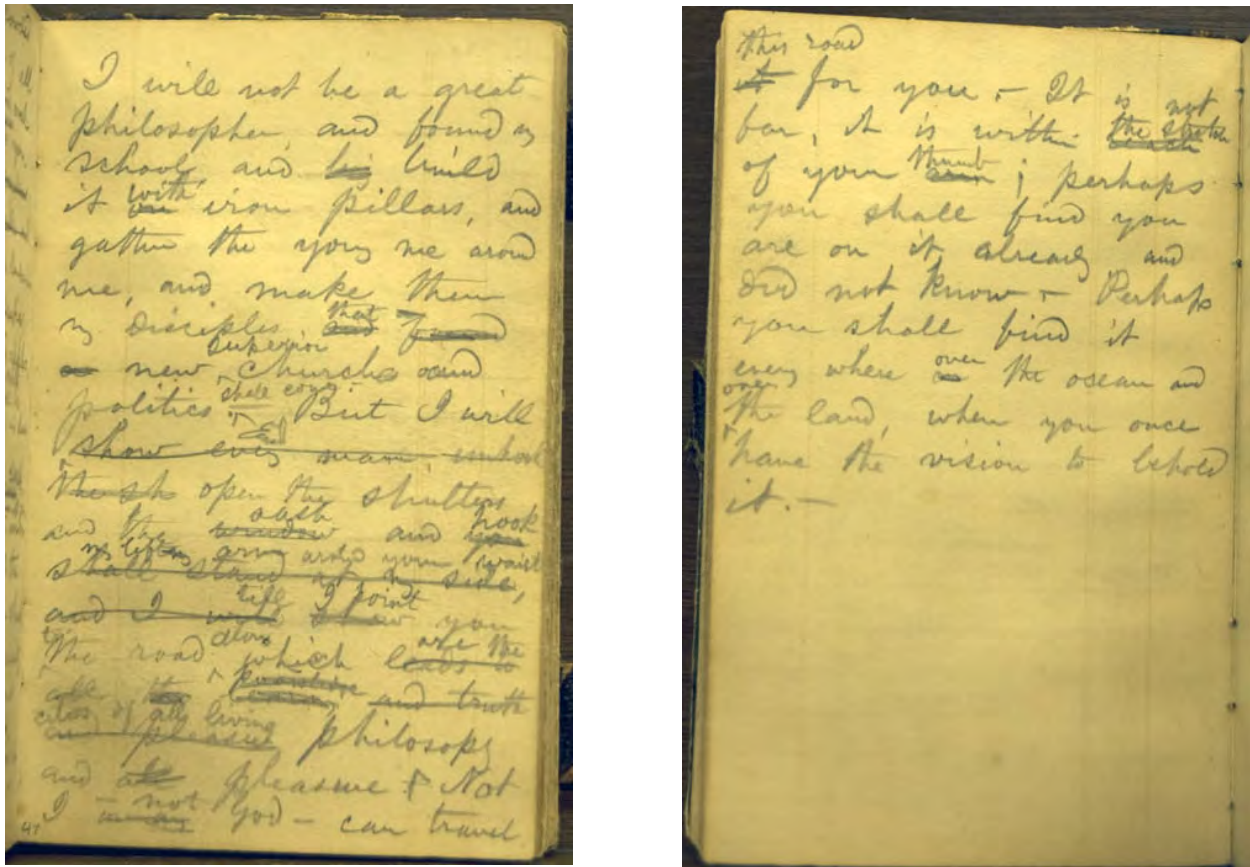 I will not be a great
philosopher, and found any
school, and build
it with iron pillars, and
gather the young me around
me, and make them
my disciples, that found
superior
new churches and
politics. shall come But I will
show every man,
the sh open the shutters
sash hook
and the window and you
my left arm around your waist
shall stand at my side,
till I point
and I will show you
to along are the
the road which leads to
knowledge
all the learning and truth
cities of all living
and pleasure philosophy
and all pleasure. Not
not
I — God — can travel
47
this road
it for you. — It is not
far, it is within the stretch
reach
thumb
of your arm; perhaps
you shall find you
are on it already and
did not know. — Perhaps
you shall find it
over
every where on the ocean and
over
the land, when you once
have the vision to behold
it. —